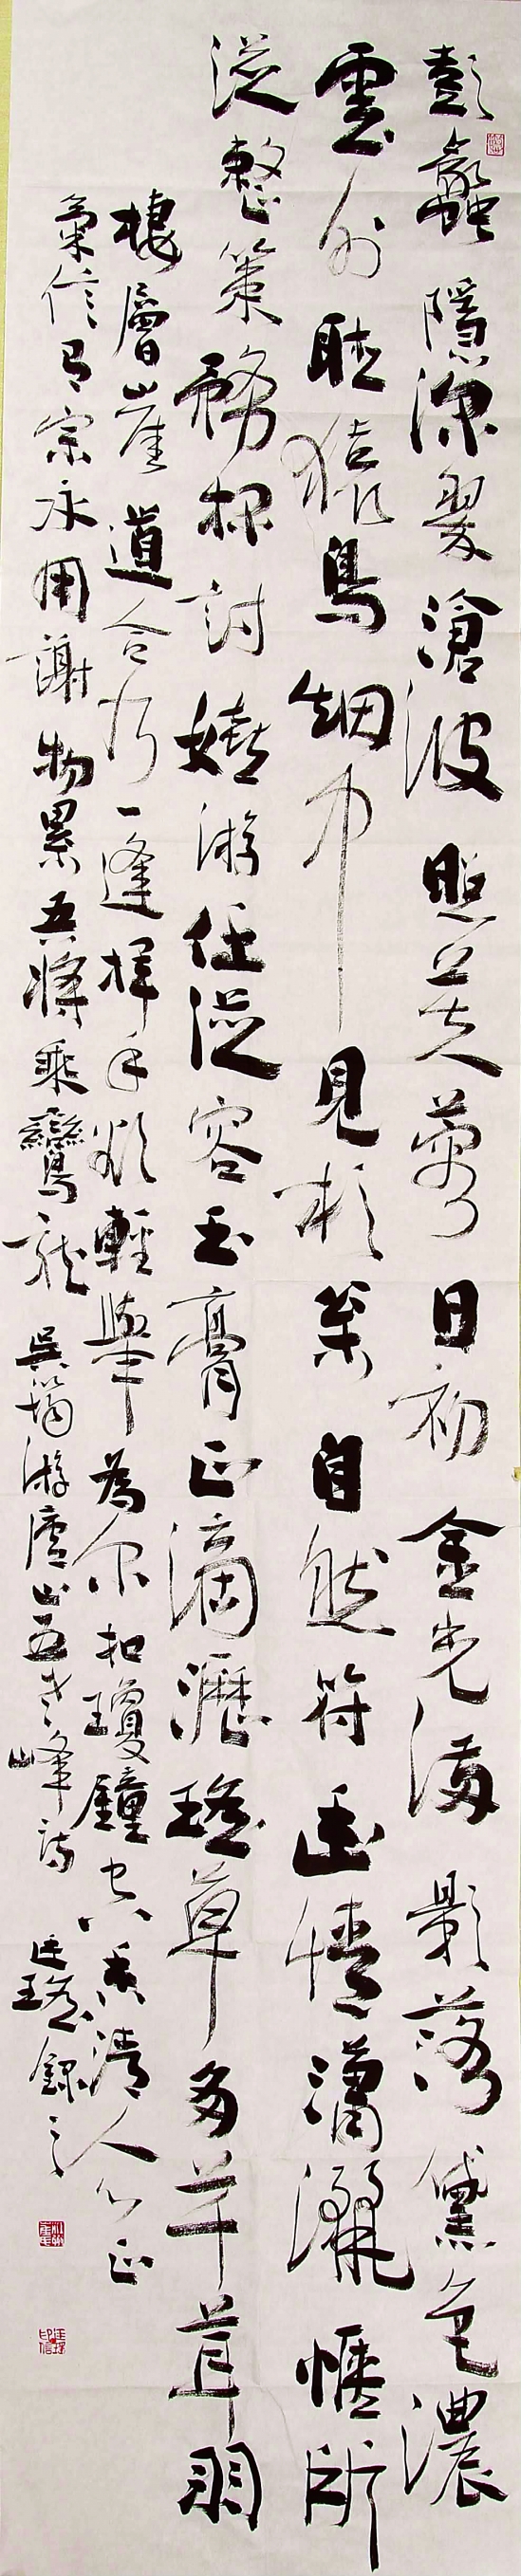 彭蠡隱深翠滄波照芙蓉日初金光滿影落黛色濃
雲外聽猿鳥烟中見杉松自然符幽情瀟灑愜所
從整策務探討嬉游任從容玉膏正滴瀝瑤草多芊茸羽
棲層崖道合乃一逢揮手欲輕舉為尔扣瓊鐘空香清人心正
氣信有宗永用謝物累吾將乘鸞龍 吳筠游廬山五老峰詩 廷瑤錄之